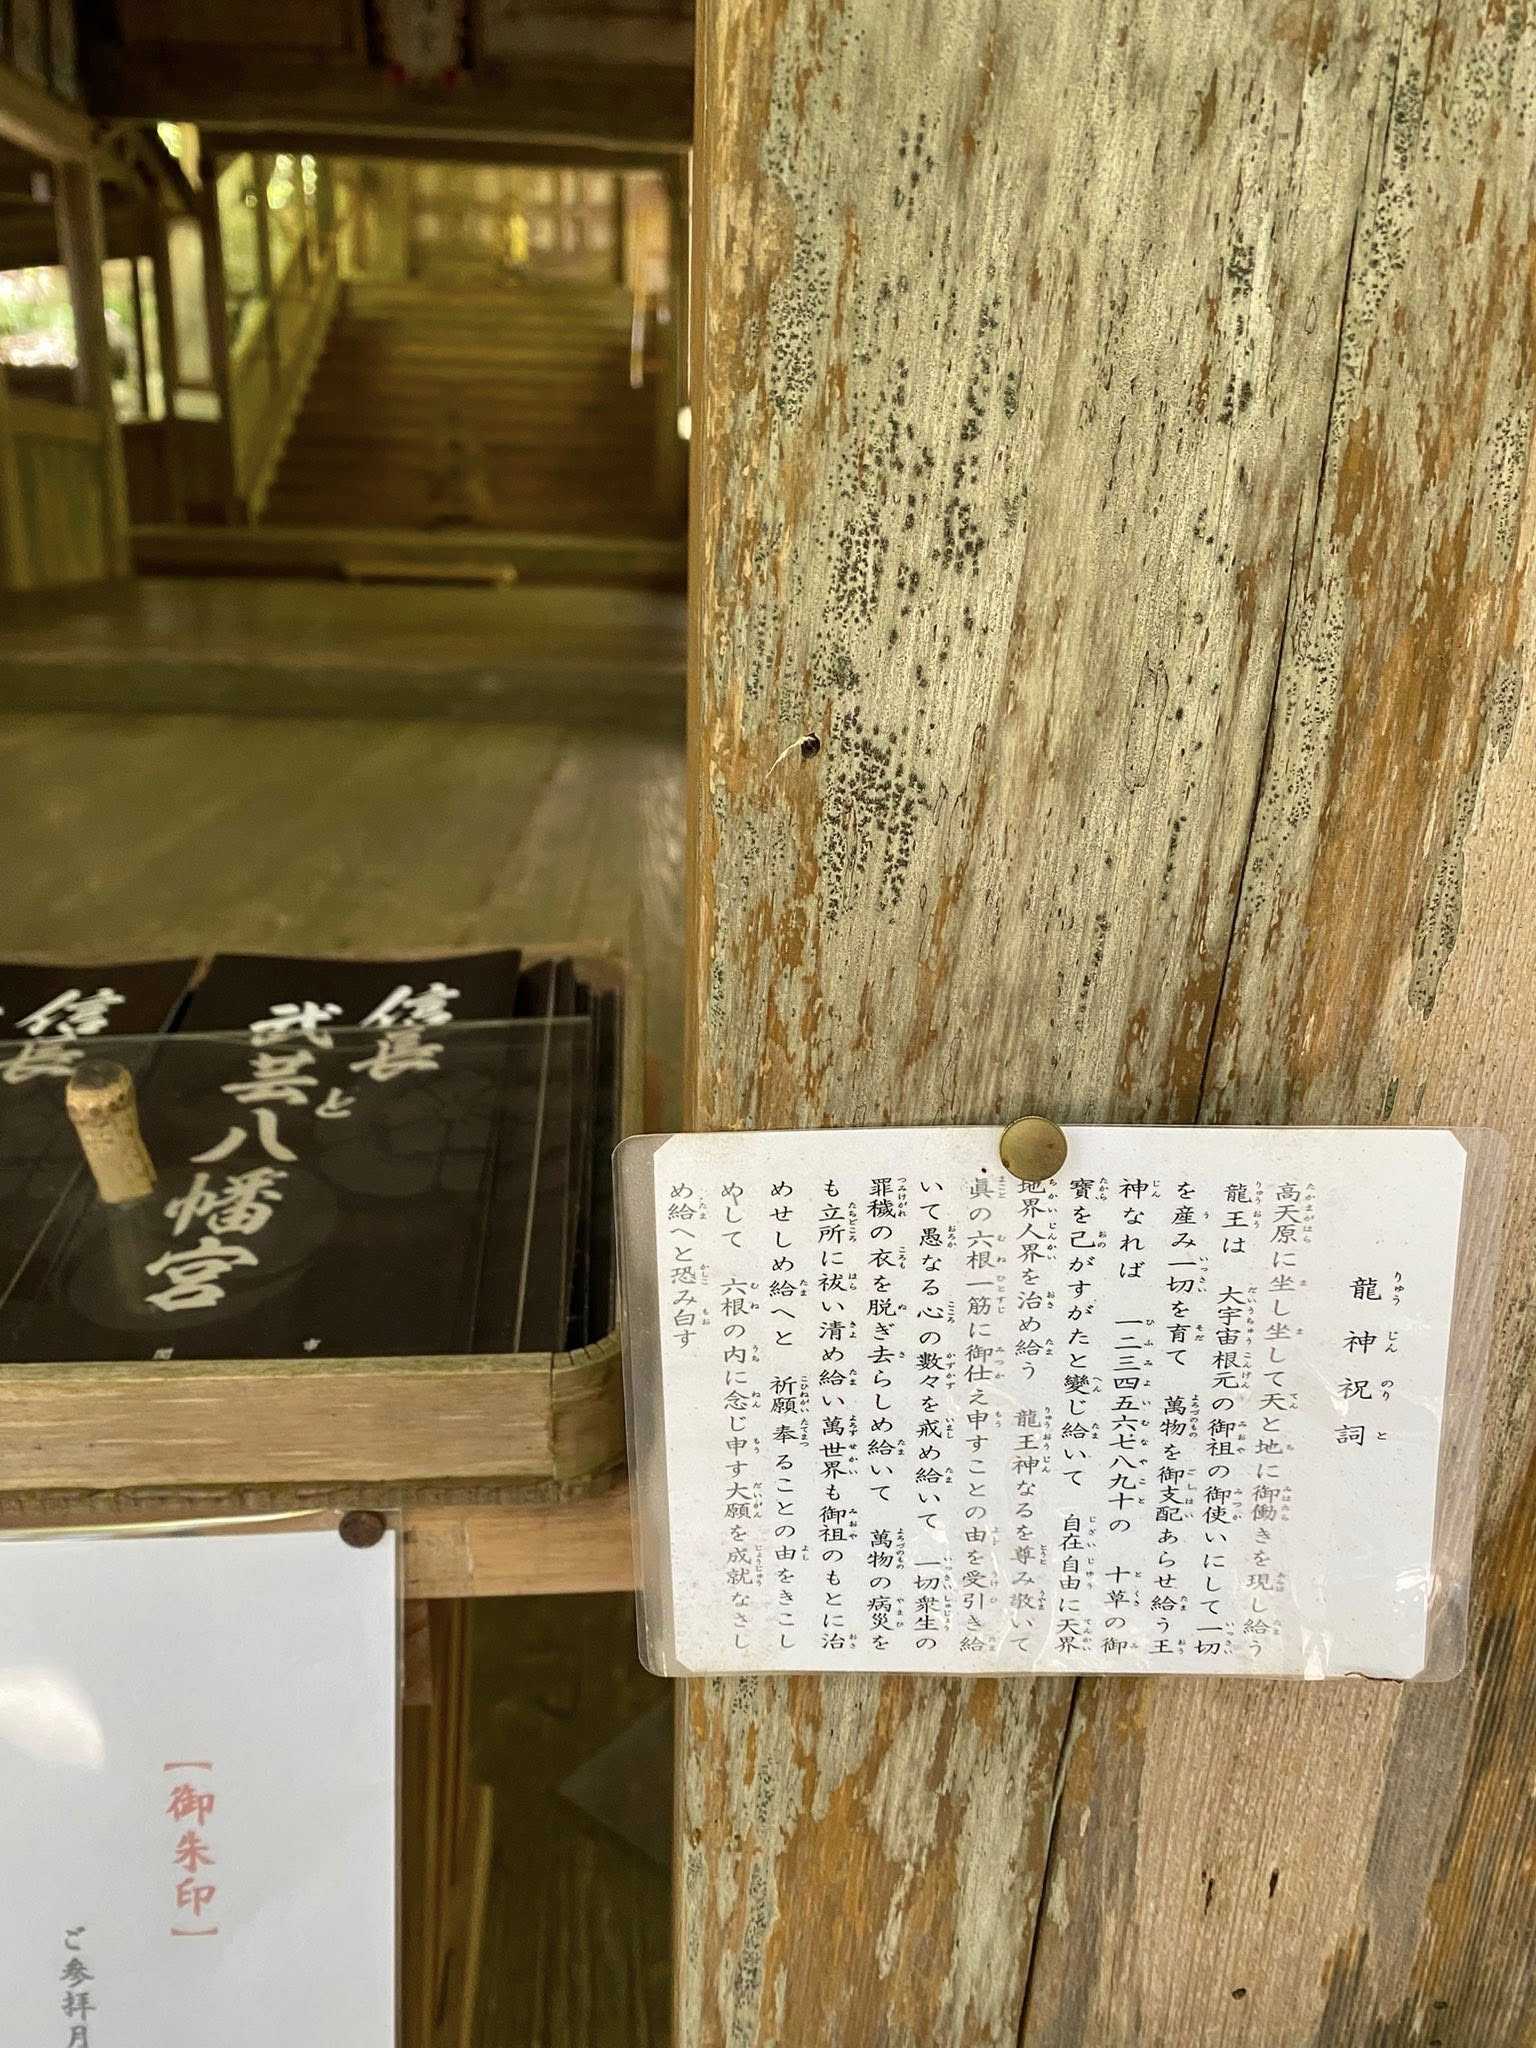 龍神祝詞
高天原に坐し坐して天と地に御働きを現し給う
龍王は 大宇宙根元の御祖の御使いにして一切
を産み一切を育て 萬物を御支配あらせ給う王
神なれば 一二三四五六七八九十の 十草の御
寶を己がすがたと變じ給いて 自在自由に天界
地界人界を治め給う 龍王神なるを尊み敬いて
眞の六根一筋に御仕え申すことの由を受引き給
いて愚なる心の数々を戒め給いて 一切衆生の
罪穢の衣を脱ぎ去らしめ給いて 萬物の病災を
も立所に祓い清め給い萬世界も御祖のもとに治
めせしめ給へと 祈願奉ることの由をきこし
めして 六根の内に念じ申す大願を成就なさし
め給へと恐み白す
信長
と
武芸八幡宮
信長
【御朱印】
ご参拝月